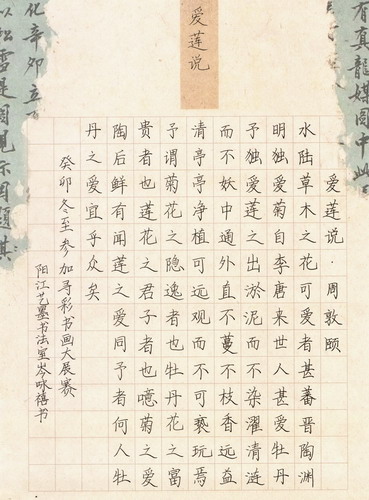 爱莲说
有真龍媒圖中此
爱莲说·周敦颐
水陆草木之花可爱者甚蕃晋陶渊
明独爱菊自李唐来世人甚爱牡丹
予独爱莲之出淤泥而不染濯清涟
而不妖中通外直不蔓不枝香远益
清亭亭净植可远观而不可亵玩焉
予谓菊花之隐逸者也牡丹花之富
贵者也莲花之君子者也噫菊之爱
陶后鲜有闻莲之爱同予者何人牡
丹之爱宜乎众矣
癸卯冬至参加寻彩书画大展赛
阳江艺墨书法室岑咏禧书
化辛卯立
以松雪是圖見示因題其